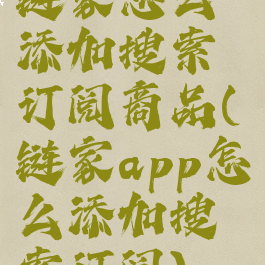 链家怎么
添加搜索
订阅商品(
链家app怎
么添加搜
索订阅)